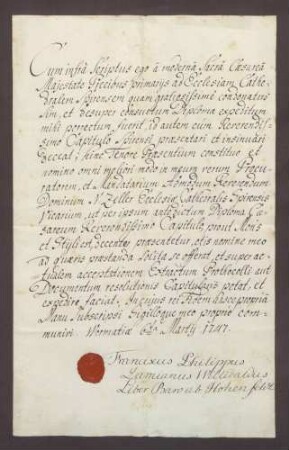 Cum infra Scriptus ego à modernâ Sacrâ Cæsareâ
Majestate Precibus primarijs ad Ecclesiam Cathe-
dralem Spirensem quam gratiosissime condonatus
sim, et desuper consuetum Diploma expeditum
mihi porrectum fuerit, id autem cum Reverendis-
simo Capitulo Spirensi præsentari et insinuari
deceat; hinc Tenore Præsentium constituo et
nomino omni meliori modo in meum verum Procu-
ratorem, et Mandatarium Admodum Reverendum
Dominum N. Zeller Ecclesiæ Cathedralis Spirensis
Vicarium, ut per ipsum antedictum Diploma Cæ-
sareum Reverendissimo Capitulo, prout Moris
et Styli est, decenter præsentetur, et is nomine meo
ad quævis præstanda solita se offerat, et super ac-
tualem acceptationem Extractum Prothocolli aut
Documentum resolutionis Capitularis petat, et
expediri faciat. In cujus rei fidem hasce propriâ
Manu Subscripsi Sigilloque meo proprio com-
munivi. Wormatiæ 6ta Martij 1747.
Franciscus Philippus
Damianus
Liber Baro ab Hohen